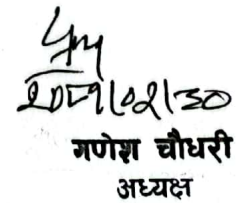 २०८१/०२/३०
गणेश चौधरी
अध्यक्ष